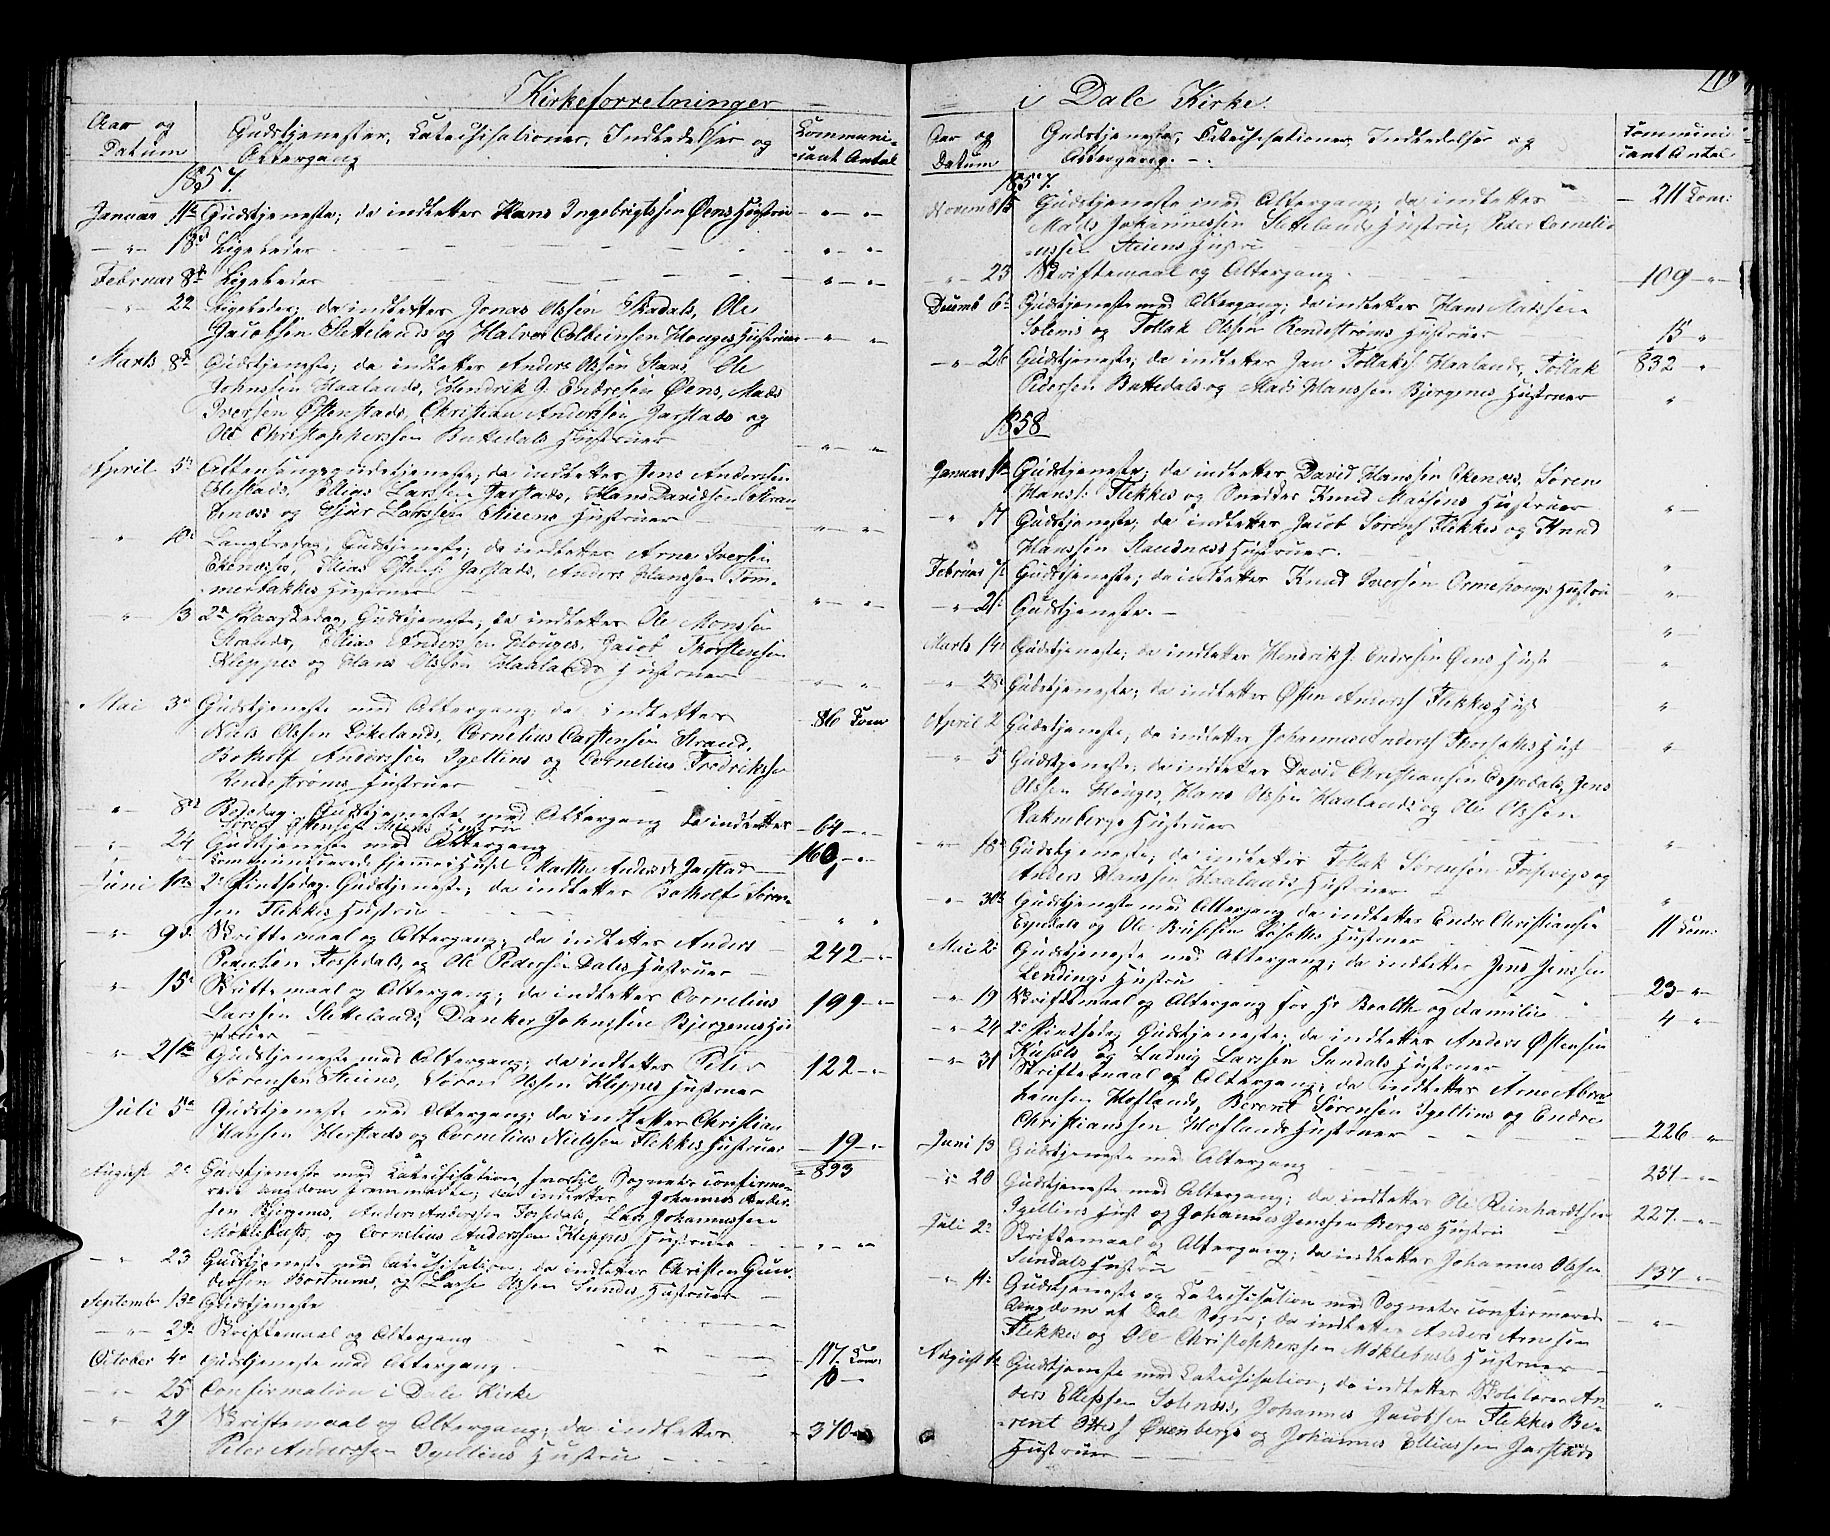 Kirkeforretninger
Aar og
Datum
Gudstjenester, Catechisationer, Indledelser og
Altergang
Communi-
cant Antal
1857.
Januar 11te Gudstjeneste; da indlettes Hans Ingebrigtssen Øens Hustru
18d Ligeleder
Februar 8de Ligeleder
22 Ligeleder; da indlettes Jonas Olssen Skadals, Ole
Jacobsen Slettelands og Halvor Colbeinsen Houges Hustruer
Marts 8d Gudstjeneste; da indlettes Anders Olssen Stavs, Ole
Johnssen Haalands, Hendrik J. Endresen Øens, Mads
Iversen Østenstads, Christian Anderssen Jarstads og
Ole Christopherssen Battedals Hustruer
April 5te Aftensangsgudstjeneste; da indlettes Jens Anderssen
Larssen Jarstads, Hans Davidsen Stran-
og Larssen Steiens Hustruer
10d Langfredag, Gudstjeneste; da indlettes Arne Iversen
Ekenæsses, Elias Østens: Jarstads, Anders Hanssen Tøm-
merbakkes Hustruer
13 2d Paaskedag, Gudstjeneste; da indlettes Ole Monssen
Strands, Elias Anderssen Houges, Jacob Thorstensen
Kleppes og Hans Olssen Haalands Hustruer
Mai 3d Gudstjeneste med Altergang; da indlettes 86 Com
Niels Olssen Løkelands, Cornelius Carstensen Strand,
Botholf Anderssen Igellins og Cornelius Fredrikssen
Rendestrøms Hustruer
8de Bededag, Gudstjeneste med Altergang da indlettes 64
Søren Østensen Steiens Hustru
24 Gudstjeneste med Altergang 160
Communicered hjemme i Huset Marthe Andersd. Jarstad
Juni 1te 2d Pintsedag. Gudstjeneste; da indlettes Botholf Søren-
sen Flekkes Hustru
9d Skriftemaal og Altergang; da indlettes Anders 242
Fossedals, og Ole Pedersen Dales Hustruer
15d Skriftemaal og Altergang; da indlettes Cornelius 199
Larssen Slettelands, Danker Johnssen Bjergenes Hu-
struer
21te Gudstjeneste med Altergang; da indlettes Peter 122
Sørensen Steiens, Søren Olssen Kleppes Hustruer
Juli 5te Gudstjeneste med Altergang; da indlettes Christian
Hansen Herstads og Cornelius Nielssen Flekkes Hustruer 19
893
August 2d Gudstjeneste med Catechisation, hvortil Sognets confirme-
rede Ungdom fremmødte; da indlettes Johannes Ander-
sen Bjergenes, Anders Anderssen Fossedals, Lars Johannessen
Møklebusts, og Cornelius Anderssen Kleppes Hustruer
23 Gudstjeneste med Catechisation; da indlettes Christen Gun-
dersen og Lasse Olssen Sundes Hustruer
September 13d Gudstjeneste
29d Skriftemaal og Altergang
October 4d Gudstjeneste med Altergang 117. Com:
10
25 Confirmation i Dale Kirke
29 Skriftemaal og Altergang; da indlettes 370
Peter Anderssen Igellins Hustru
i Dale Kirke.
119
Aar og
Datum
Gudstjenester, Catechisationer, Indledelser og
Altergang.
Communi-
cant Antal
1857.
Novemb 15 Gudstjeneste med Altergang; da indlettes 211 Com:
Mads Johannessen Slettelands Hustru, Peder Corneli-
ussen Steiens Hustru
23 Skriftemaal og Altergang 109
Decemb 6d Gudstjeneste med Altergang; da indlettes Hans Matsen
Solems og Tollak Olssen Rendestrøms Hustruer 15
26 Gudstjeneste; da indlettes Jan Tollaks: Haalands, Tollak 832
Pedersen Battedals og Mads Hanssen Bjergenes Hustruer
1858
Januar Gudstjeneste; da indlettes David Hanssen Ekenæs, Søren
Hanss: Flekkes og Snedker Knud Madsens Hustruer
17 Gudstjeneste; da indlettes Jacob Sørens: Flekkes og Knud
Hanssen Hustruer.
Februar Gudstjeneste; da indlettes Knud Iversen Ormehougs Hustru
21 Gudstjeneste.
Marts 14d Gudstjeneste; da indlettes Hendrik J: Endresen Øens Hust
28d Gudstjeneste; da indlettes Østen Anderss Flekkes Hust
April 2 Gudstjeneste; da indlettes Johannes Anderss Hust
5 Gudstjeneste; da indlettes David Christiansen Espedals, Jens
Olssen Houges, Hans Olssen Haalands og Ole Olssen
Hustruer
18d Gudstjeneste; da indlettes Tollak Sørensen og
Anders Hanssen Haalands Hustruer
30te Gudstjeneste med Altergang da indlettes Endre Christiansen
Espedals og Ole Hustruer 11 Com:
Mai 2d Gudstjeneste med Altergang; da indlettes Jens Jenssen
Lendings Hustru 23
19 Skriftemaal og Altergang for Hr og Familie 4
24 2d Pintsedag Gudstjeneste; da indlettes Anders Østensen
og Ludvig Larssen Sandals Hustruer
31 Skriftemaal og Altergang; da indlettes Arne Abra-
hamsen Hoflands, Berent Sørensen Igellins og Endre
Christianssen Hoflands Hustruer 226
Juni 13 Gudstjeneste med Altergang 251
20 Gudstjeneste med Altergang; da indlettes Ole Reinhardtsen
Igellins Hust og Johannes Jenssen Berges Hustru 227.
Juli 2d Skriftemaal og Altergang; da indlettes Johannes Olssen
Sundals Hustru 137
11d Gudstjeneste og Catechisation med Sognets confirmerede
Ungdom af Dale Sogn; da indlettes Anders Arnesen
Flekkes og Ole Christopherssen Møklebusts Hustruer
August Gudstjeneste med Catechisation; da indlettes Skolelærer An-
ders Ellefssen Solnæs, Johannes Jacobsen Flekkes Be-
rent Ørenberges og Johannes Elliassen Jarstads
Hustruer